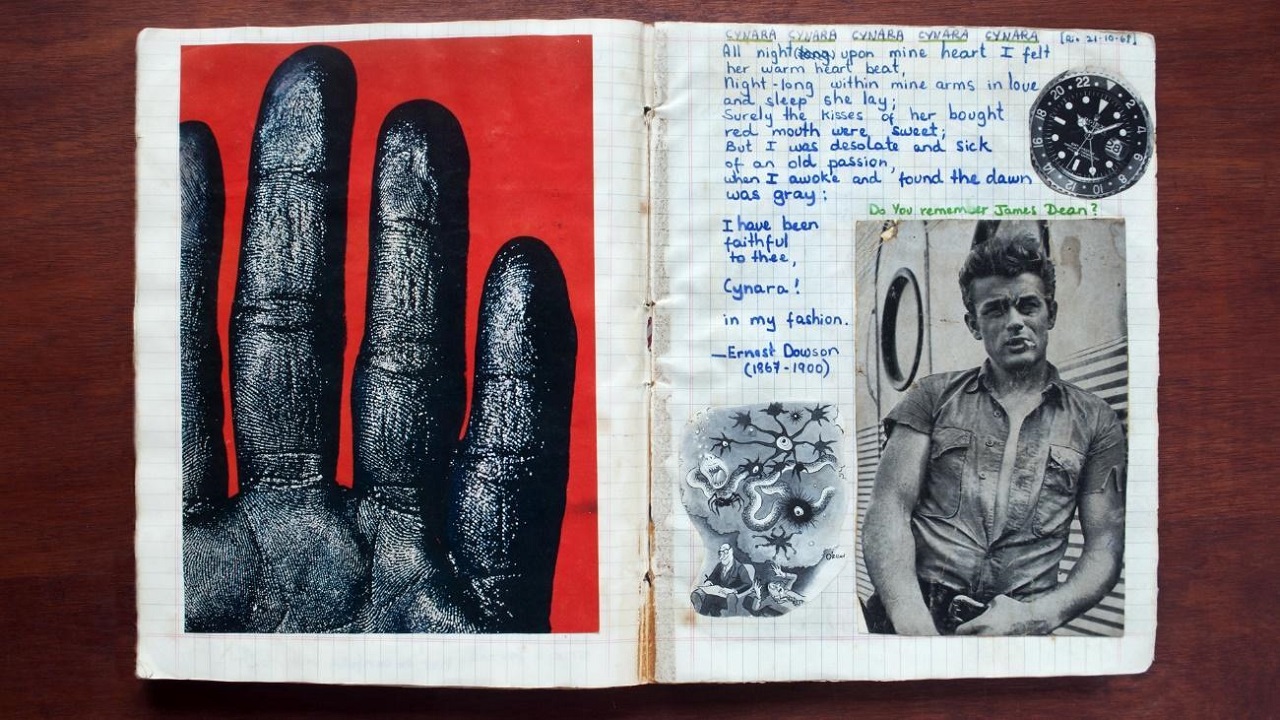 CYNARA CYNARA CYNARA CYNARA CYNARA [Rio 21-10-68]
All night (long) upon mine heart I felt
her warm heart beat,
Night-long within mine arms in love
and sleep she lay;
Surely the kisses of her bought
red mouth were sweet;
But I was desolate and sick
of an old passion,
when I awoke and found the dawn
was gray:
I have been
faithful
to thee,
Cynara!
in my fashion.
—Ernest Dowson
(1867-1900)
22 2 4 8 10 14 16 18 20
Do You remember James Dean?